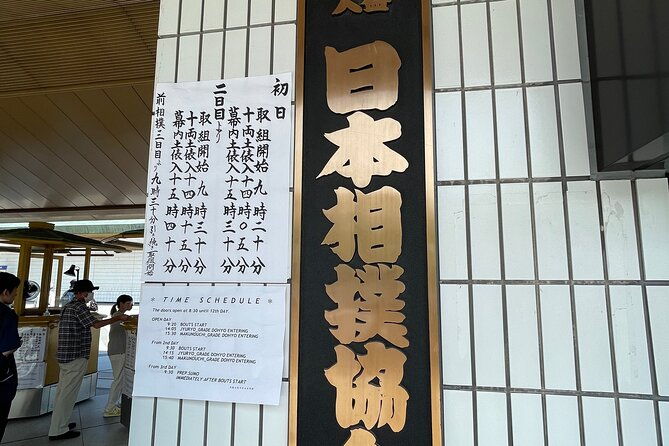 日本相撲協
初日
取組開始 九時二十分
十両土俵入十四時〇五分
幕内土俵入十五時三十分
二日目より
取組開始 九時三十分
十両土俵入十四時十五分
幕内土俵入十五時四十分
前相撲三日目より九時三十分
* TIME SCHEDULE *
The doors open at 8:30 until 12th DAY.
OPEN DAY
9:20 BOUTS START
14:05 JYURYO_GRADE DOHYO ENTERING
15:30 MAKUNOUCHI_GRADE DOHYO ENTERING
From 2nd DAY
9:30 BOUTS START
14:15 JYURYO_GRADE DOHYO ENTERING
15:40 MAKUNOUCHI_GRADE DOHYO ENTERING
From 3rd DAY
9:30 PREP.SUMO
IMMEDIATELY AFTER BOUTS START